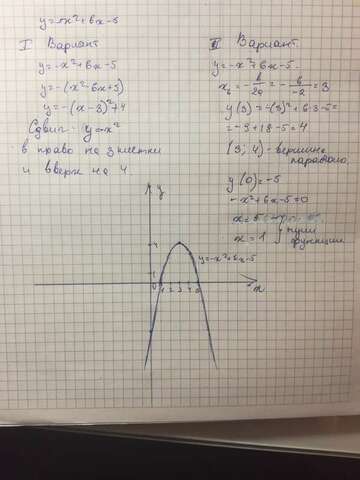 y=-x²+6x-5
I Вариант
y=-x²+6x-5
y=-(x²-6x+5)
y=-(x-3)²+4
Сдвиг y=-x²
в право на 3 клетки
и вверх на 4
II Вариант.
y=-x²+6x-5.
x₀=-b/2a=-6/-2=3
y(3)=-(3)²+6·3-5=
=-9+18-5=4
(3; 4)-вершина
параболы.
y(0)=-5
-x²+6x-5=0
x=5
x=1 } нули
функции
y
4
y=-x²+6x-5
1
0 1 2 3 4 5
x